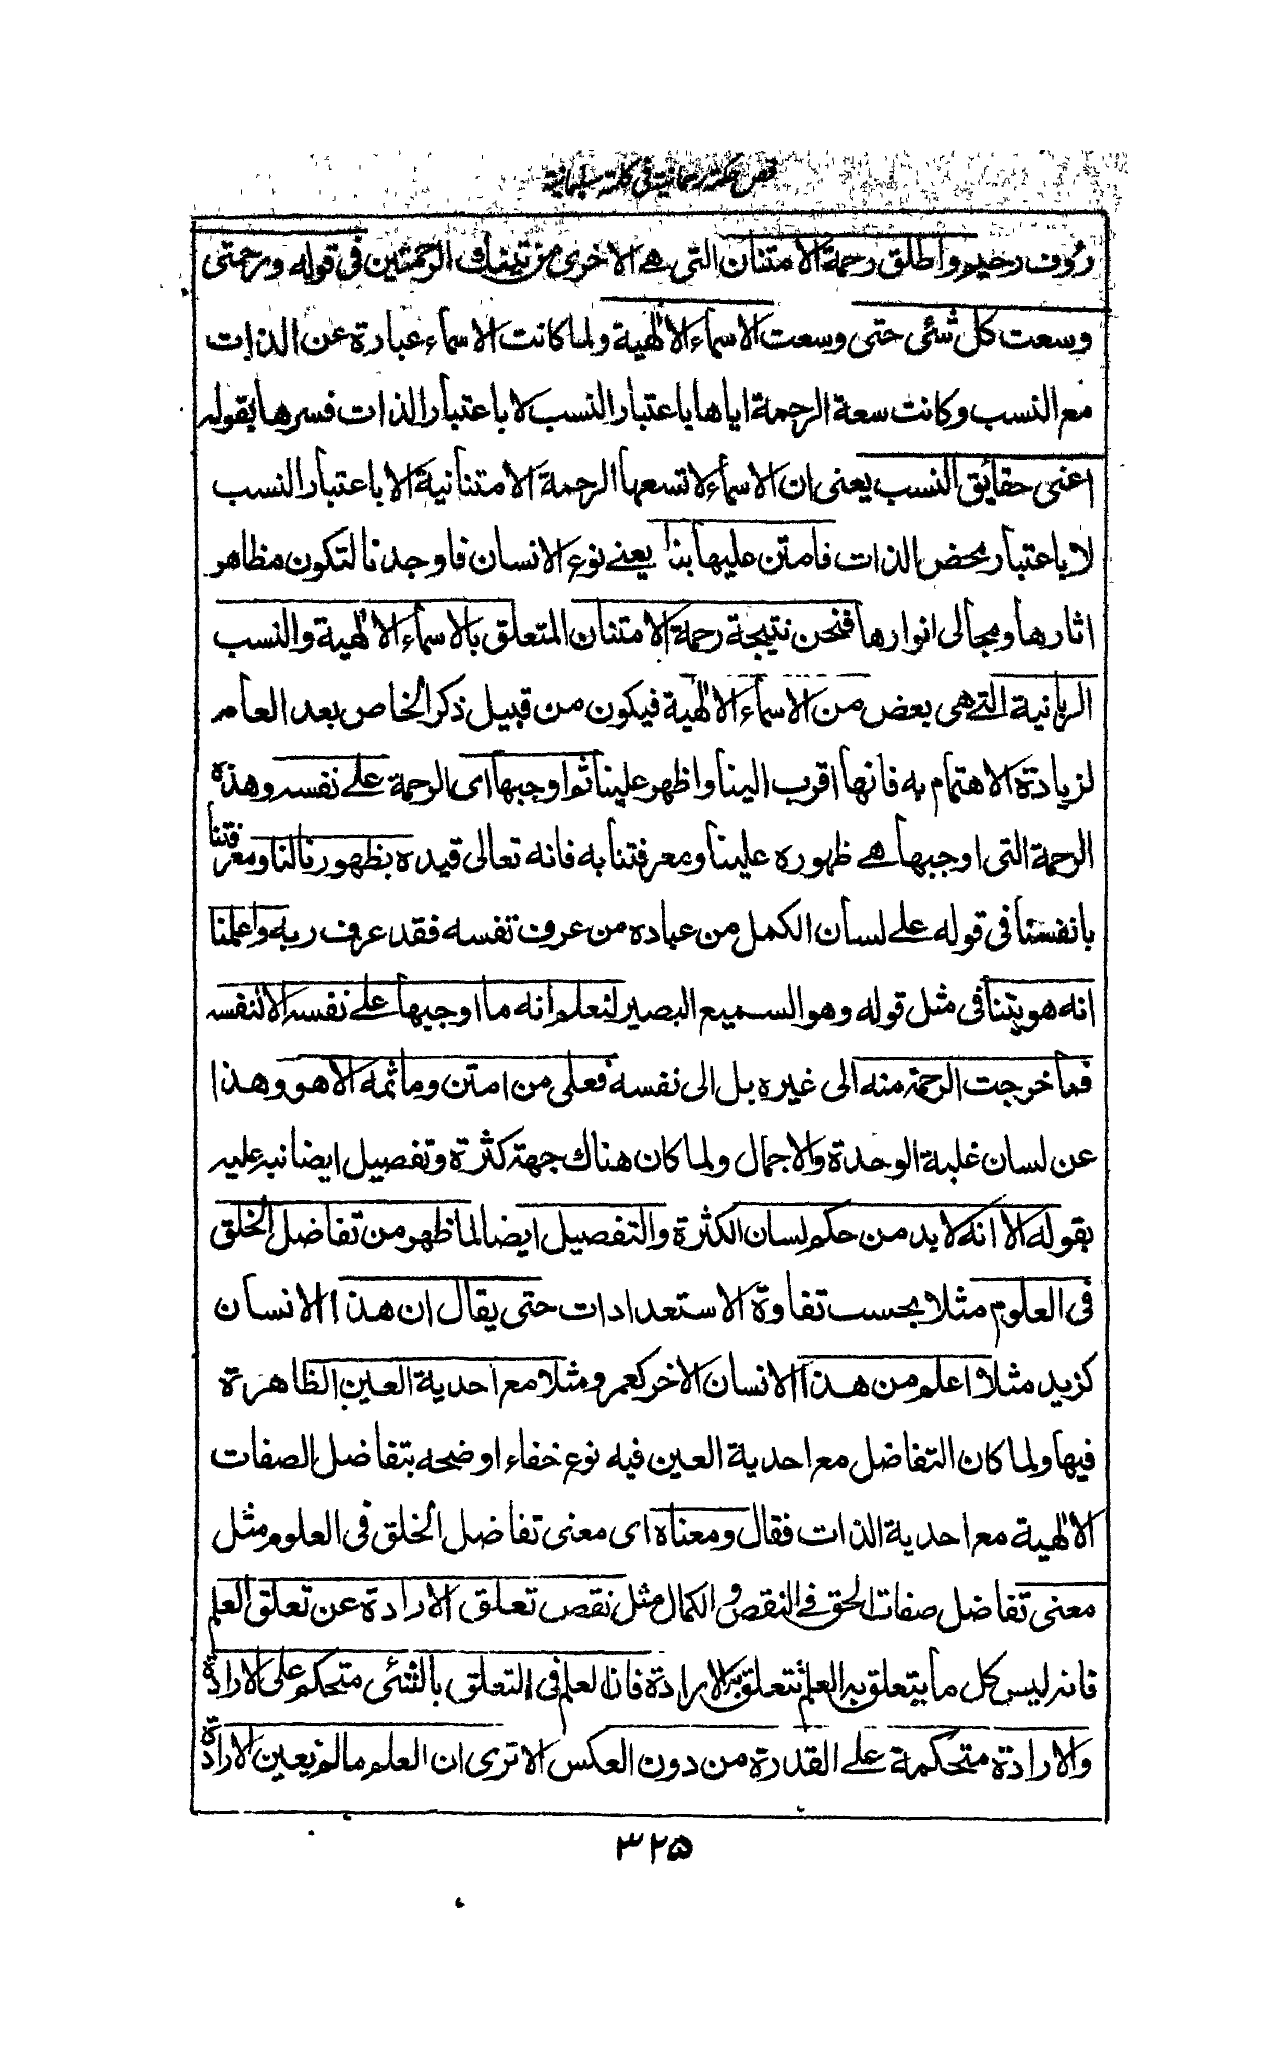 فص حكمة رحمانية في كلمة سليمانية
رؤف رحيم واطلق رحمة الامتنان التي هے الاخرى من تينك الرحمتين في قوله ورحمتى
وسعت كل شئى حتى وسعت الاسماء الالٰهية ولما كانت الاسماء عبارة عن الذات
مع النسب وكانت سعة الرحمة اياها باعتبار النسب لا باعتبار الذات فسرها بقوله
اعنى حقائق النسب يعنى ان الاسماء لا تسعها الرحمة الامتنانية الا باعتبار النسب
لا باعتبار محض الذات فامتن عليها بنا يعنے نوع الانسان فاوجدنا لتكون مظاهر
اثارها ومجالى انوارها فنحن نتيجة رحمة الامتنان المتعلق بالاسماء الالٰهية والنسب
الربانية التے هى بعض من الاسماء الالٰهية فيكون من قبيل ذكر الخاص بعد العام
لزيادة الاهتمام به فانها اقرب الينا واظهر علينا ثم اوجبها اى الرحمة علے نفسه وهذه
الرحمة التى اوجبها هے ظهوره علينا ومعرفتنا به فانه تعالى قيده بظهورنا لنا ومعرفتنا
بانفسنا فى قوله علے لسان الكمل من عباده من عرف نفسه فقد عرف ربه واعلمنا
انه هويتنا فى مثل قوله وهو السميع البصير لنعلم انه ما اوجبها علے نفسه الا لنفسه
فما خرجت الرحمة منه الى غيره بل الى نفسه فعلى من امتن وما ثمه الا هو وهذا
عن لسان غلبة الوحدة والاجمال ولما كان هناك جهة كثرة وتفصيل ايضا نبه عليه
بقوله الا انه لا بد من حكم لسان الكثرة والتفصيل ايضا لما ظهر من تفاضل الخلق
فى العلوم مثلا بحسب تفاوة الاستعدادات حتى يقال ان هذا الانسان
كزيد مثلا اعلم من هذا الانسان الاخر كعمرو مثلا مع احدية العين الظاهرة
فيها ولما كان التفاضل مع احدية العين فيه نوع خفاء اوضحه بتفاضل الصفات
الالٰهية مع احدية الذات فقال ومعناه اى معنى تفاضل الخلق فى العلوم مثل
معنى تفاضل صفات الحق فے النقص والكمال مثل نقص تعلق الارادة عن تعلق العلم
فانه ليس كل ما يتعلق به العلم تتعلق به الارادة فان العلم فى التعلق بالشئى متحكم على الارادة
والارادة متحكمة علے القدرة من دون العكس الا ترى ان العلم ما لم يعين الارادة
۳۲۵